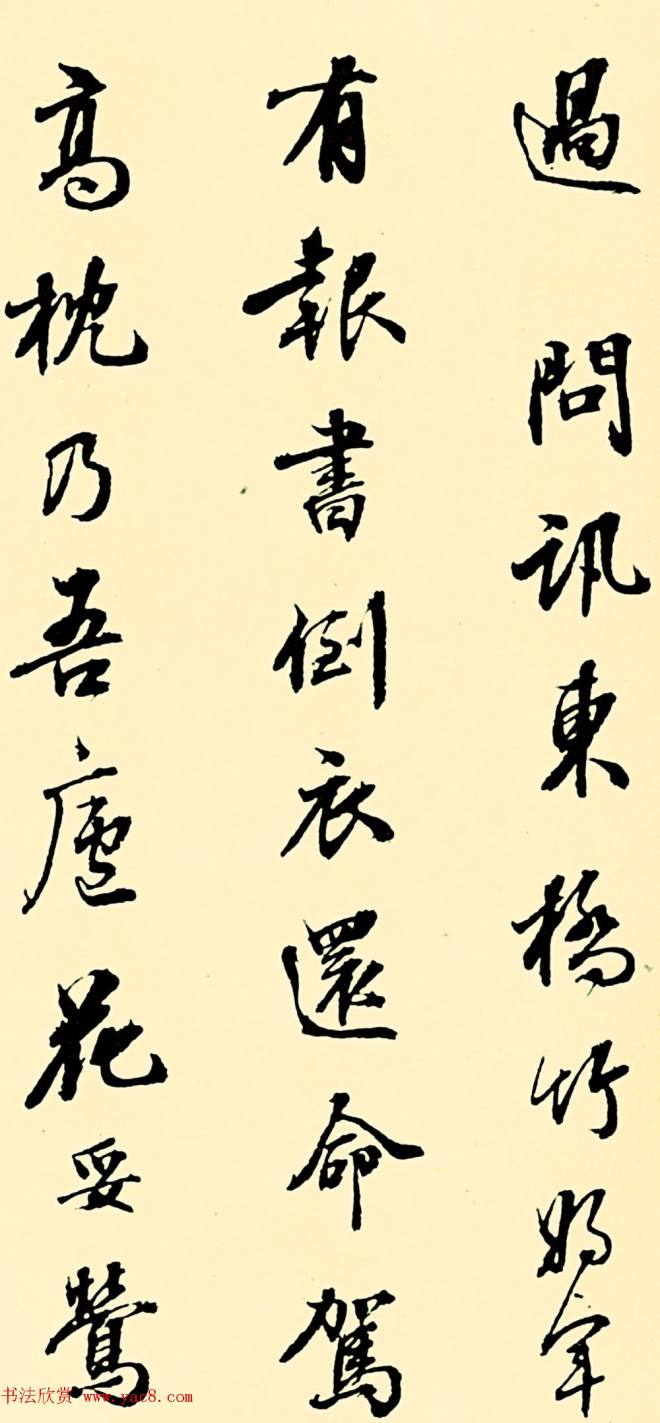 過 問訊東橋竹將軍
有報書倒衣還命駕
高枕乃吾廬花妥鶯
书法欣赏 www.yac8.com